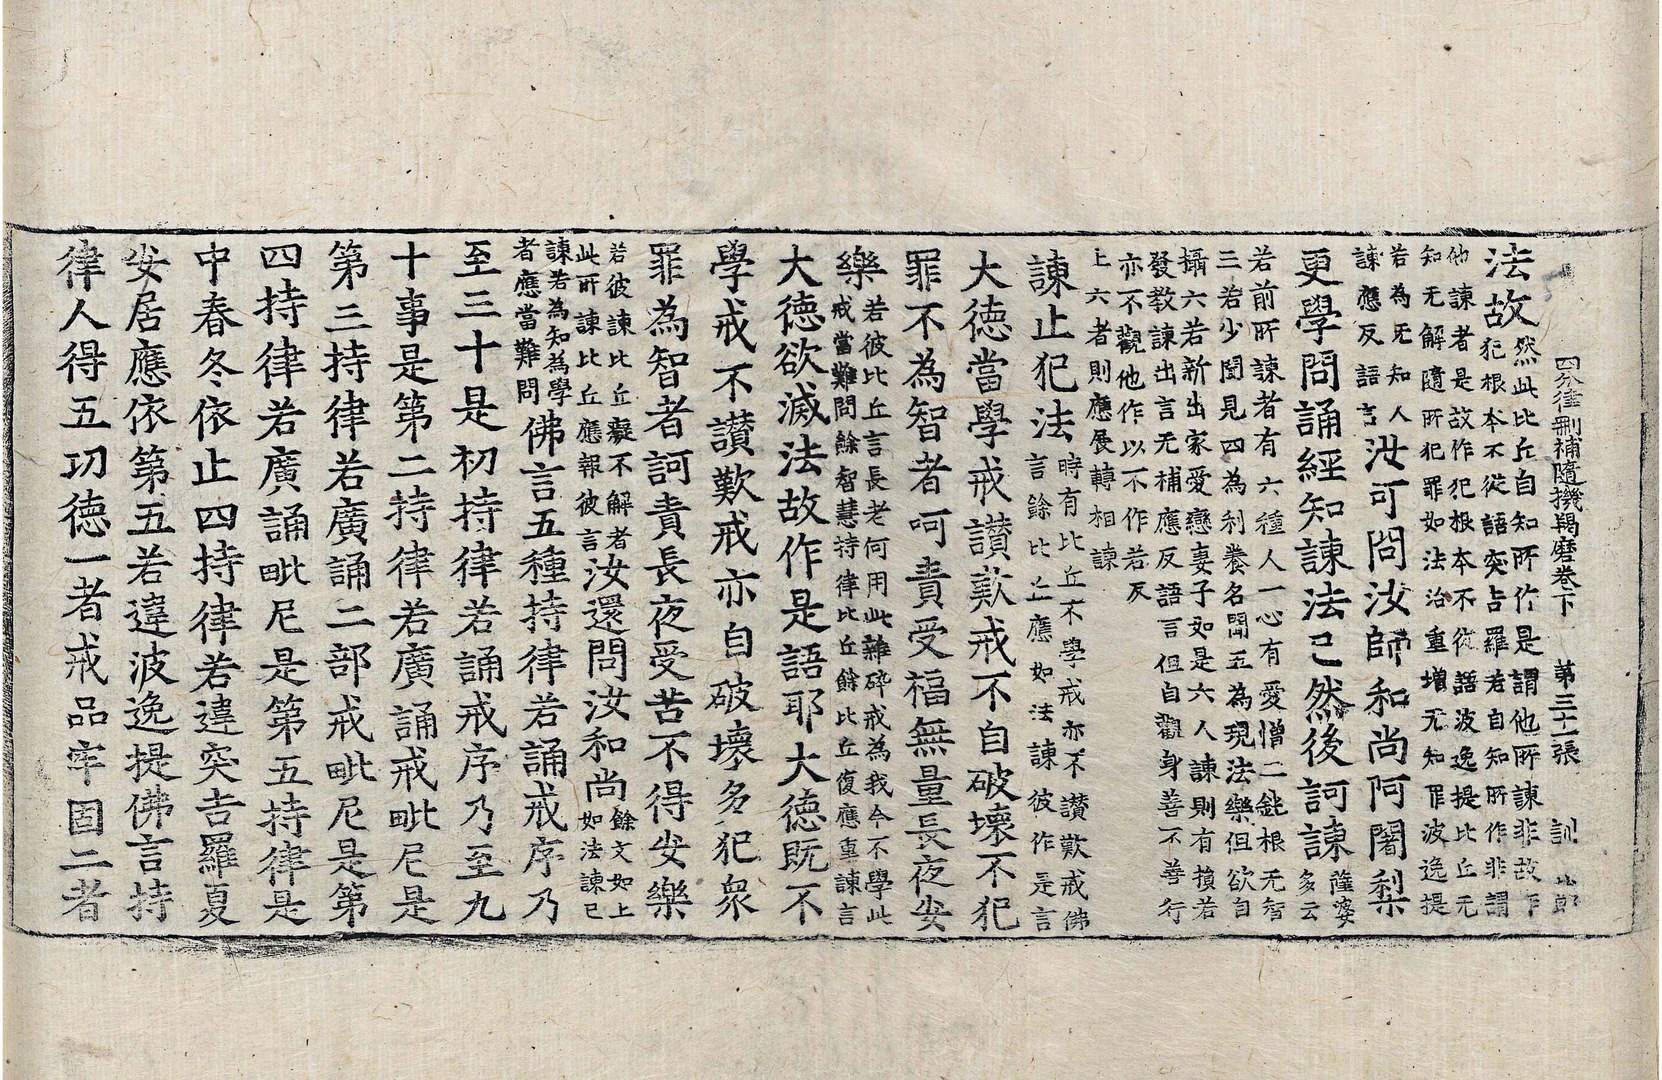 四分律刪補隨機羯磨卷下 第三十一張 訓
法故然此比丘自知所作是謂他所諫非故作
犯根本不從語突吉羅若自知所作非謂
他諫者是故作犯根本不從語波逸提比丘无
知无解隨所犯罪如法治重增无知罪波逸提
若為无知人
諫應反語言汝可問汝師和尚阿闍梨
更學問誦經知諫法已然後訶諫薩婆
多云
若前所諫者有六種人一心有愛憎二鈍根无智
三若少聞見四為利養名聞五為現法樂但欲自
攝六若新出家愛戀妻子如是六人諫則有損若
發教諫出言无補應反語言但自觀身善不善行
亦不觀他作以不作若反
上六者則應展轉相諫
諫止犯法時有比丘不學戒亦不讃歎戒佛
言餘比丘應如法諫彼作是言
大德當學戒讃歎戒不自破壞不犯
罪不為智者呵責受福無量長夜安
樂若彼比丘言長老何用此雜碎戒為我今不學此
戒當難問餘智慧持律比丘餘比丘復應重諫言
大德欲滅法故作是語耶大德既不
學戒不讃歎戒亦自破壞多犯衆
罪為智者訶責長夜受苦不得安樂
若彼諫比丘癡不解者
此所諫比丘應報彼言汝還問汝和尚餘文如上
如法諫已
諫若為知為學
者應當難問佛言五種持律若誦戒序乃
至三十是初持律若誦戒序乃至九
十事是第二持律若廣誦戒毗尼是
第三持律若廣誦二部戒毗尼是第
四持律若廣誦毗尼是第五持律是
中春冬依止四持律若違突吉羅夏
安居應依第五若違波逸提佛言持
律人得五功德一者戒品牢固二者